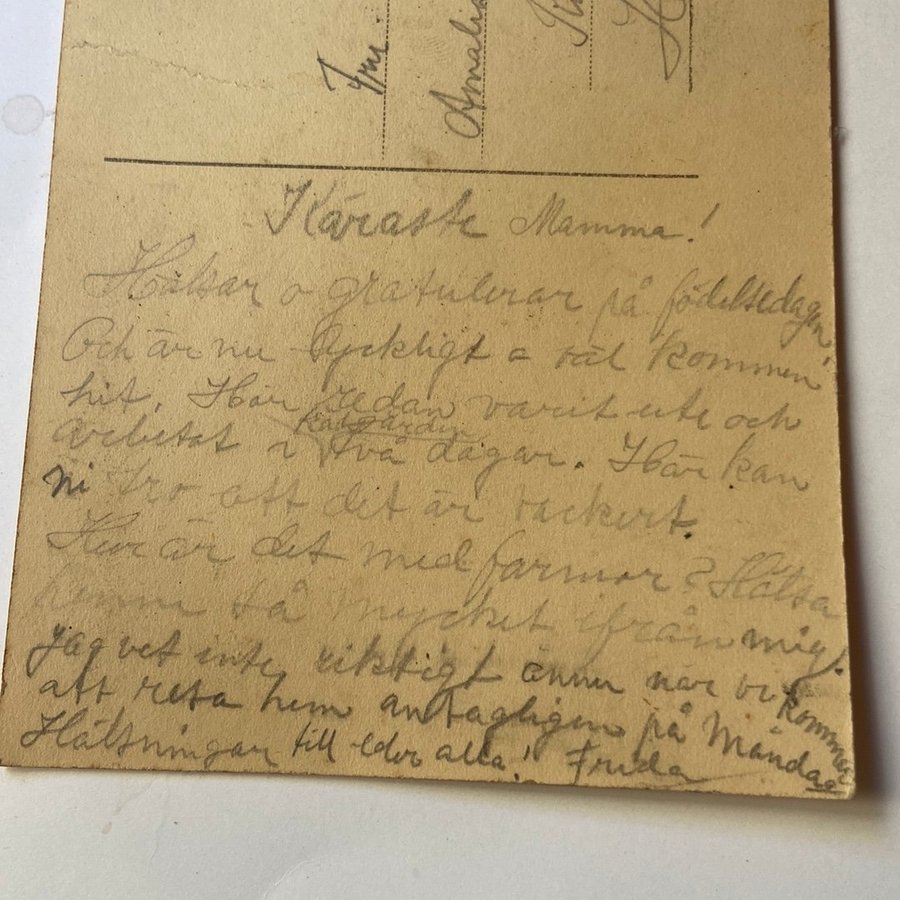 Fru
Amalia
Käraste Mamma!
Hälsar o gratulerar på födelsedagen!
Och är nu lyckligt o väl kommen
hit. Har redan varit ute och
arbetat i två dagar. Här kan
ni tro att det är vackert.
Hur är det med farmor? Hälsa
henne så mycket ifrån mig!
Jag vet inte riktigt ännu när vi kommer
att resa hem antagligen på Måndag
Hälsningar till eder alla! Frida